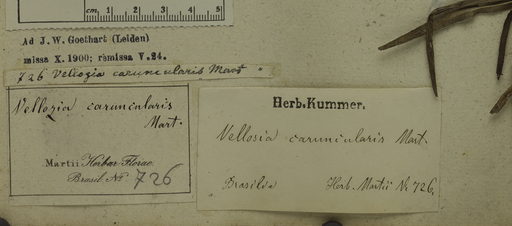 cm 1 2 3 4 5
Ad J. W. Goethart (Leiden)
missa X. 1900; remissa V. 24.
726 Vellozia caruncularis Mart
Vellozia caruncularis
Mart.
Martii Herbar. Florae
Brasil. No 726
Herb. Kummer.
Vellosia caruncularis Mart.
Brasilia Herb. Martii No 726.